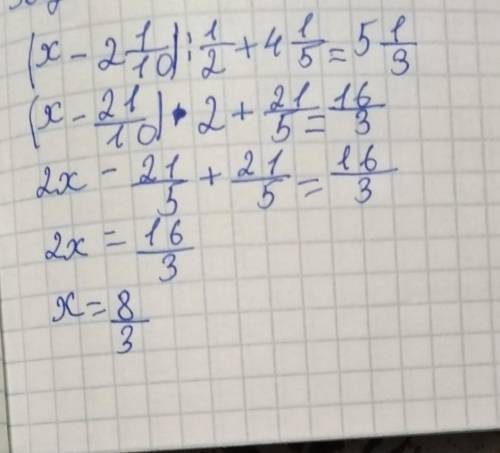 (x - 2 1/10) : 1/2 + 4 1/5 = 5 1/3
(x - 21/10) • 2 + 21/5 = 16/3
2x - 21/5 + 21/5 = 16/3
2x = 16/3
x = 8/3